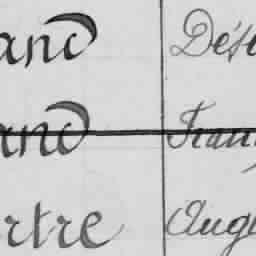 and Dése
and Fran
ertre Augu